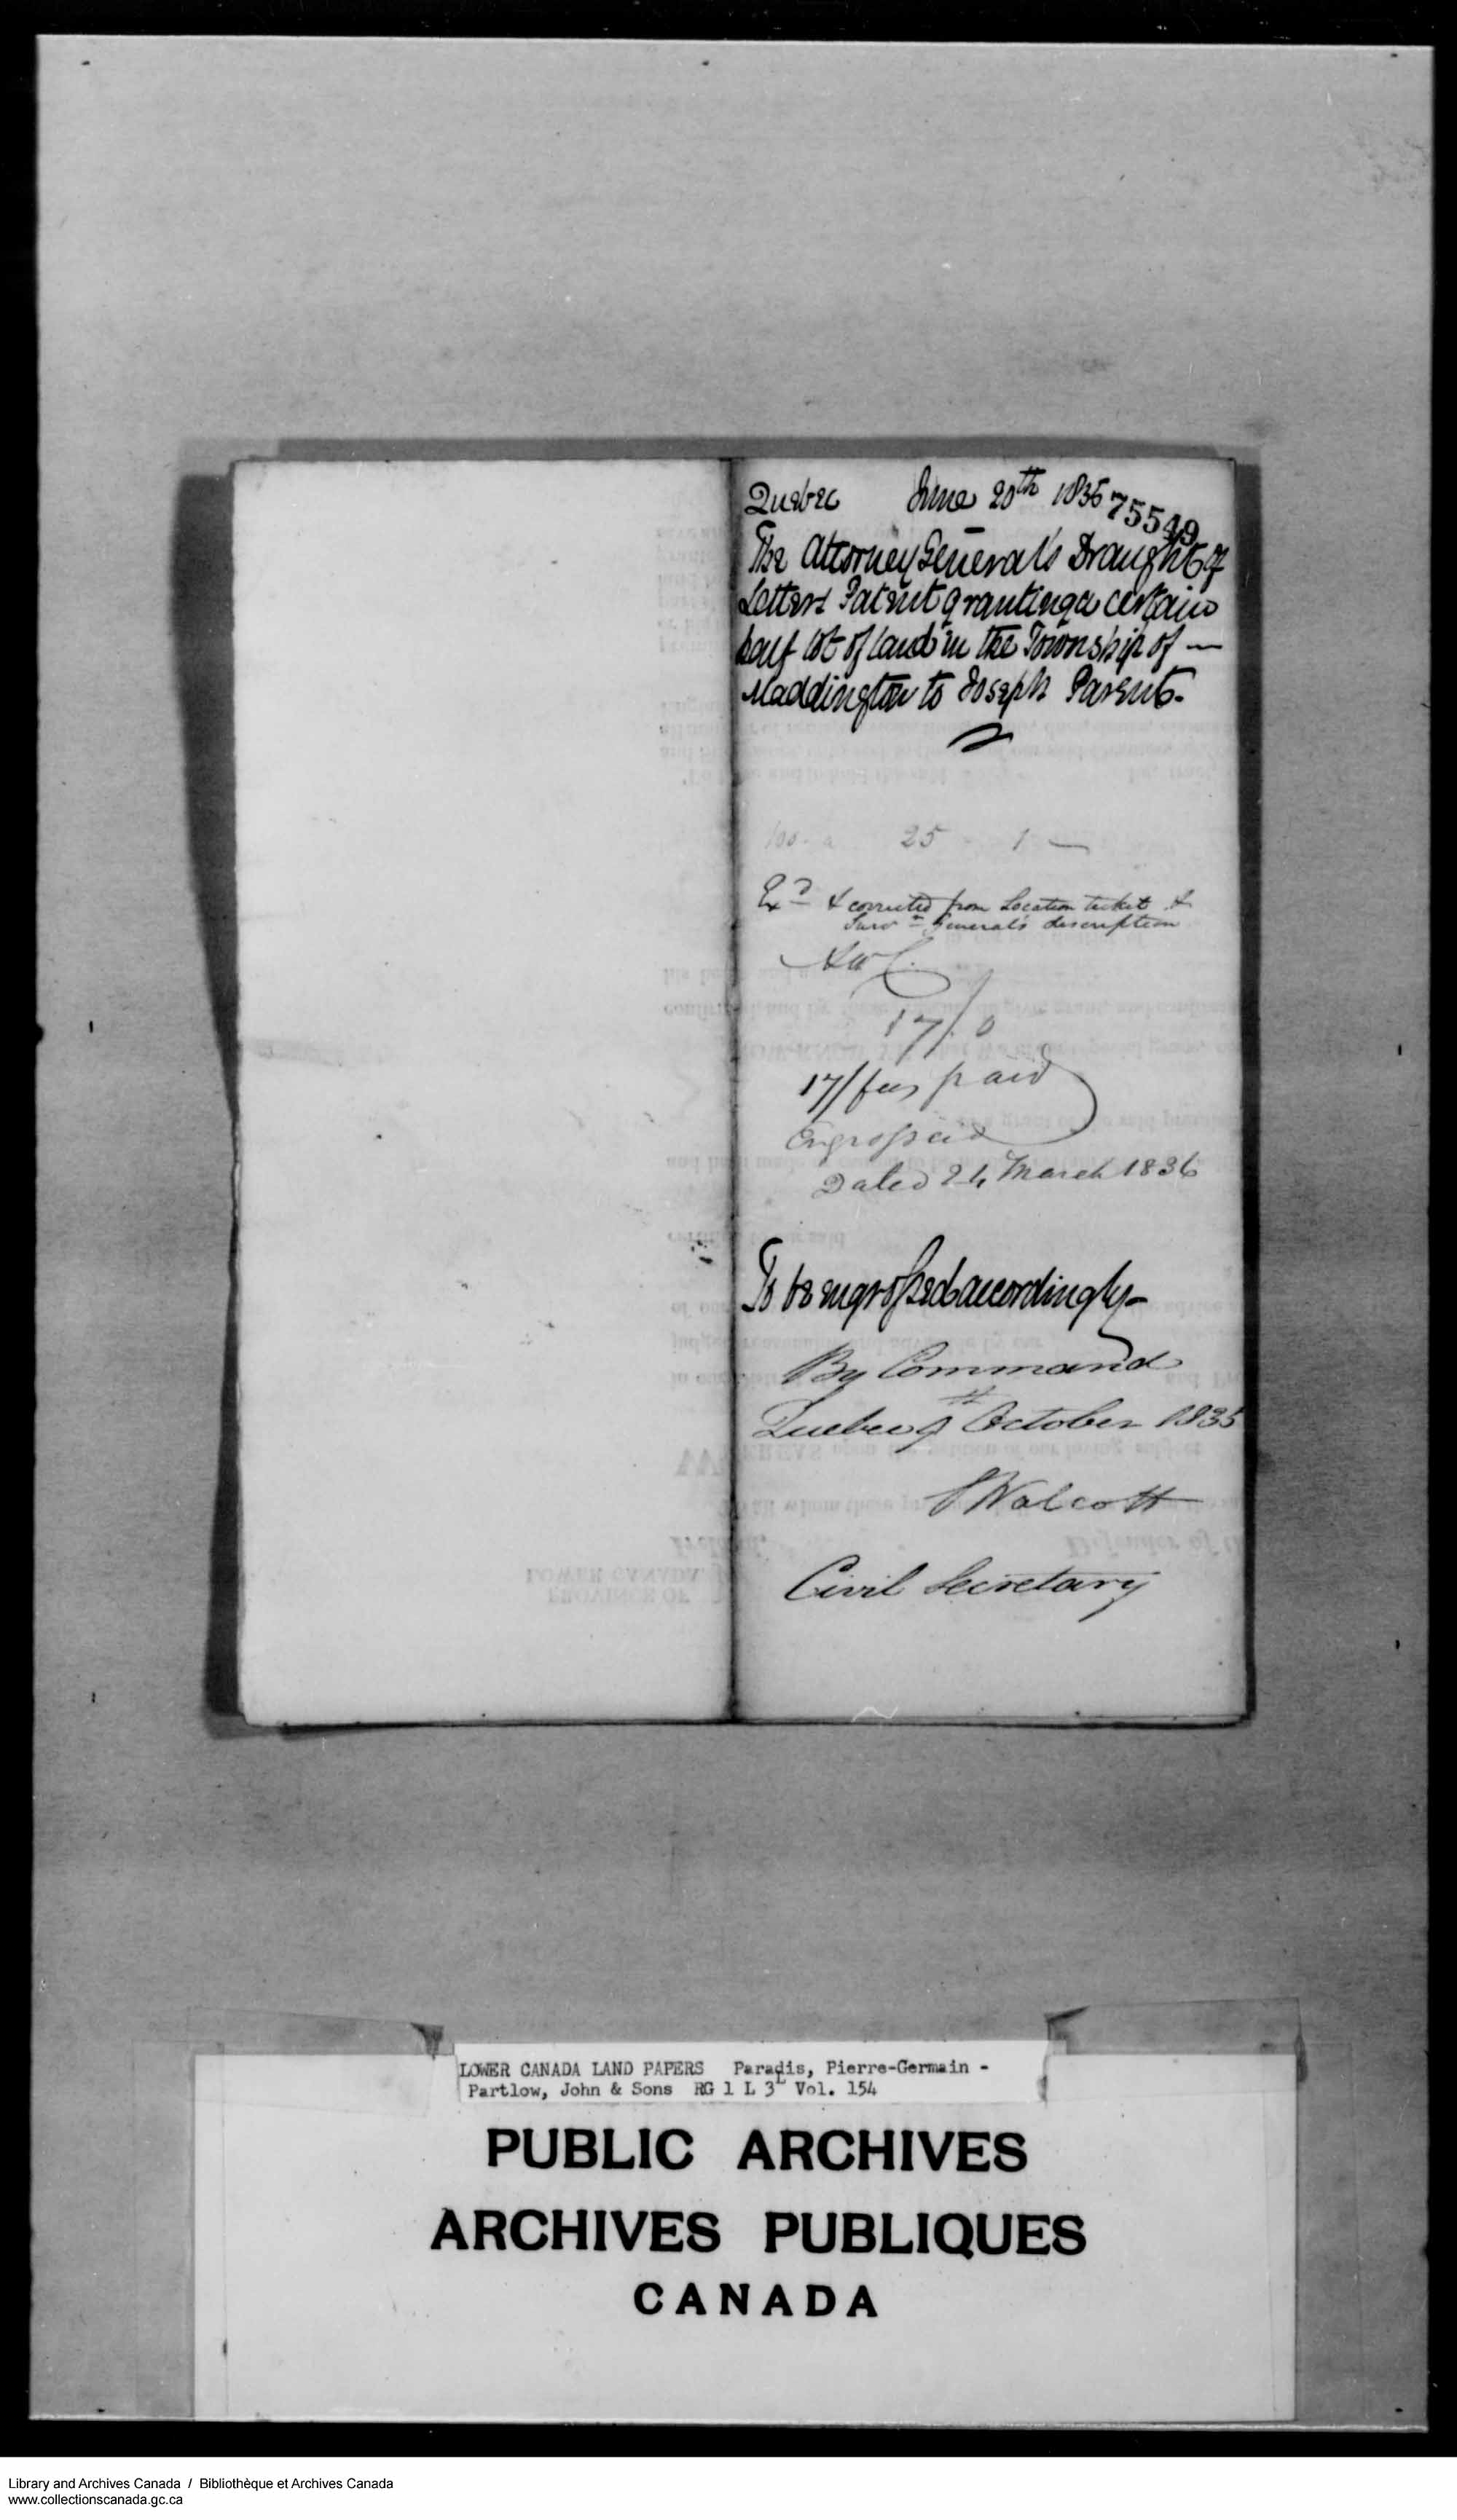 Quebec June 20th 1835
75549
The Attorney General's Draught of
Letters Patent granting a certain
half lot of land in the Township of —
Maddington to Joseph Parent.
100 - a 25 - 1 —
Exd & corrected from Location ticket &
Survr General's description
17/.0
17/ fees paid
Engrossed
Dated 24 March 1836
To be engrossed accordingly —
By Command
Quebec October 1835
S Walcott
Civil Secretary
LOWER CANADA LAND PAPERS Paradis, Pierre-Germain -
Partlow, John & Sons RG 1 L 3L Vol. 154
PUBLIC ARCHIVES
ARCHIVES PUBLIQUES
CANADA
Library and Archives Canada / Bibliothèque et Archives Canada
www.collectionscanada.gc.ca